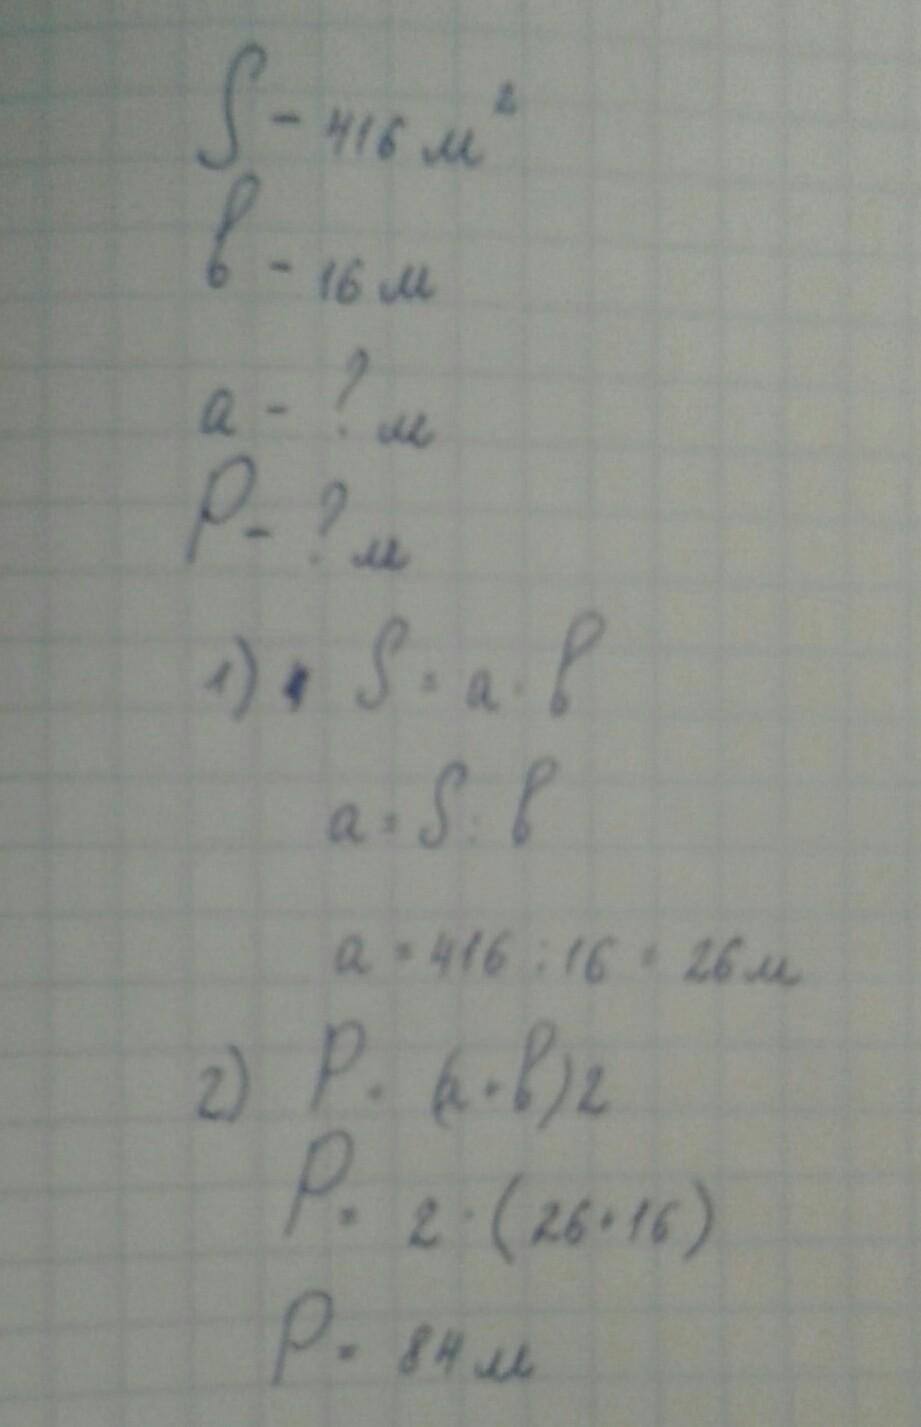 S - 416 м²
в - 16 м
а - ? м
Р - ? м
1) S = а · в
а = S : в
а = 416 : 16 = 26 м
2) Р = (а + в) 2
Р = 2 · (26 + 16)
Р = 84 м